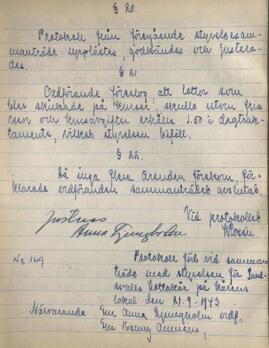 § 20.
Protokoll från föregående styrelsesam-
manträde upplästes, godkändes och justera-
des.
§ 21.
Ordförande föreslog att lottor som
blev skickade på kurser, skulle utom fria
resor och kursavgifter erhålla 1.50 i dagtrak-
tamente, vilket styrelsen biföll.
§ 22.
Då inga flera ärenden förekom, för-
klarade ordföranden sammanträdet avslutat.
Vid protokollet
Justeras
Anna Ljungholm
No 169
Protokoll fört vid samman-
träde med styrelsen för
Lottakår på Kårens
lokal den 21.9-1943
Närvarande Fru Anna Ljungholm ordf.
Fru